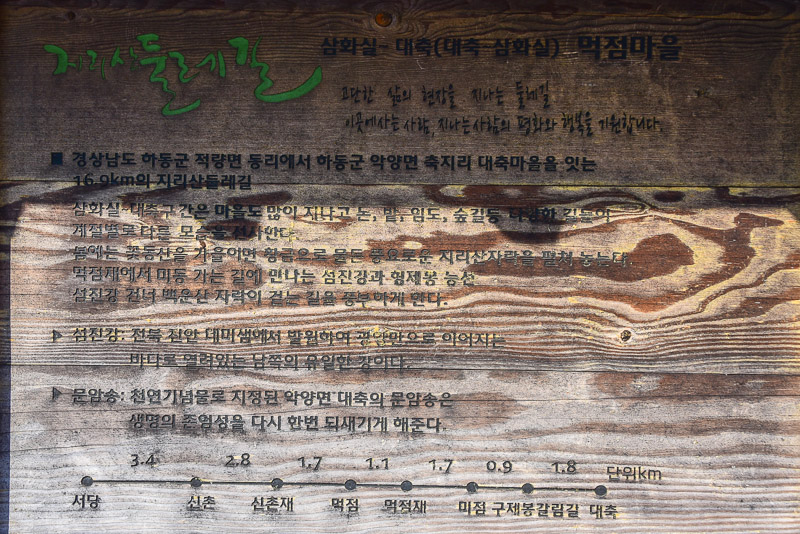 지리산둘레길
삼화실- 대축(대축-삼화실) 먹점마을
고단한 삶의 현장을 지나는 둘레길
이곳에사는사람, 지나는사람의 평화와 행복을 기원합니다.
■ 경상남도 하동군 적량면 동리에서 하동군 악양면 축지리 대축마을을 잇는
16.9km의 지리산둘레길
삼화실-대축구간은 마을도 많이 지나고 논, 밭, 임도, 숲길등 다양한 길들이
계절별로 다른 모습을 선사한다.
봄에는 꽃동산을 가을이면 황금으로 물든 풍요로운 지리산자락을 펼쳐 놓는다.
먹점재에서 미동 가는 길에 만나는 섬진강과 형제봉 능선
섬진강 건너 백운산 자락이 걷는 길을 풍부하게 한다.
섬진강: 전북 진안 데미샘에서 발원하여 광양만으로 이어지는
바다로 열려있는 남쪽의 유일한 강이다.
문암송: 천연기념물로 지정된 악양면 대축의 문암송은
생명의 존엄성을 다시 한번 되새기게 해준다.
3.4 2.8 1.7 1.1 1.7 0.9 1.8 단위km
서당 신촌 신촌재 먹점 먹점재 미점 구제봉갈림길 대축